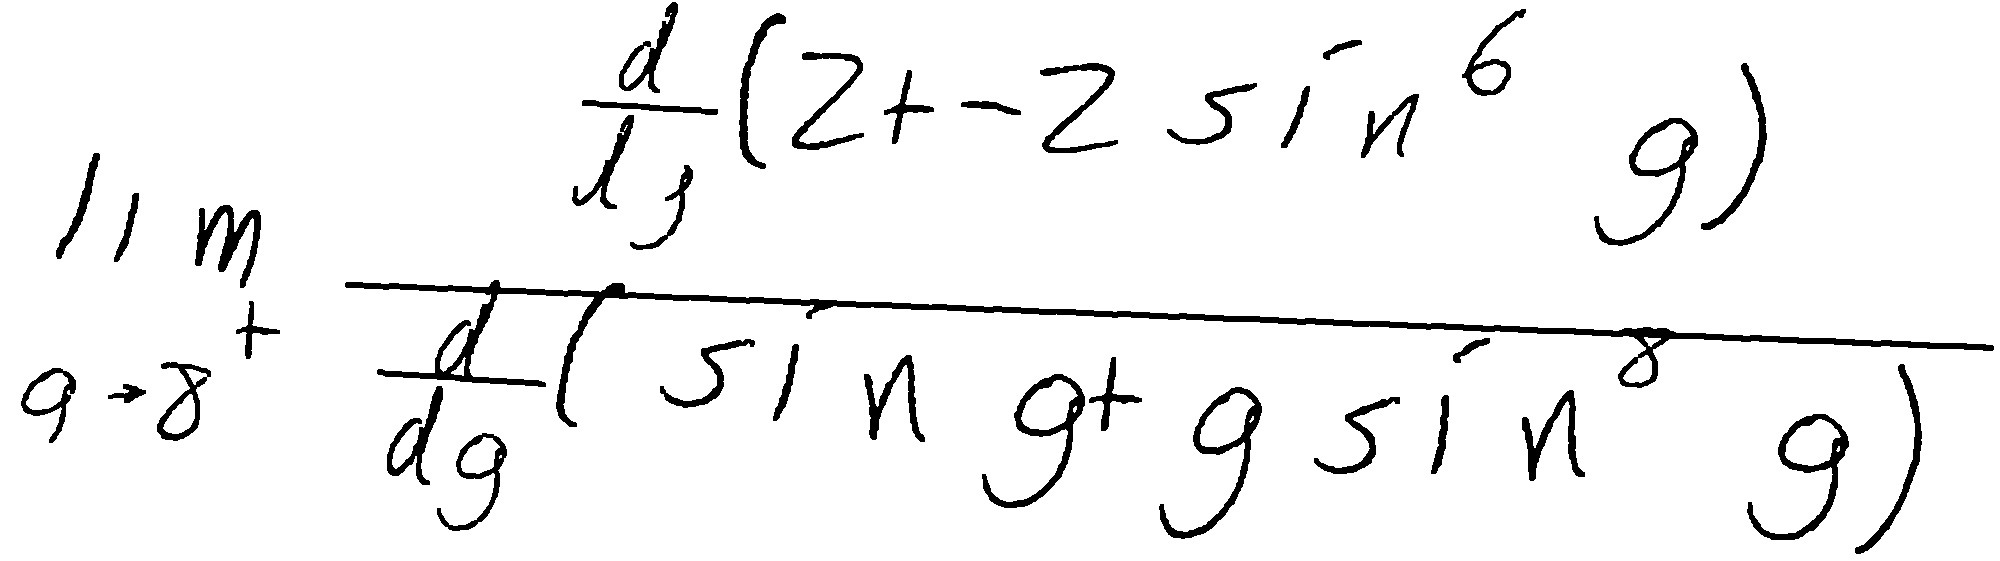 \lim_{g \to 8^+} \frac{\frac{d}{dg}(2 + -2 \sin^6 g)}{\frac{d}{dg}(\sin g + g \sin^8 g)}